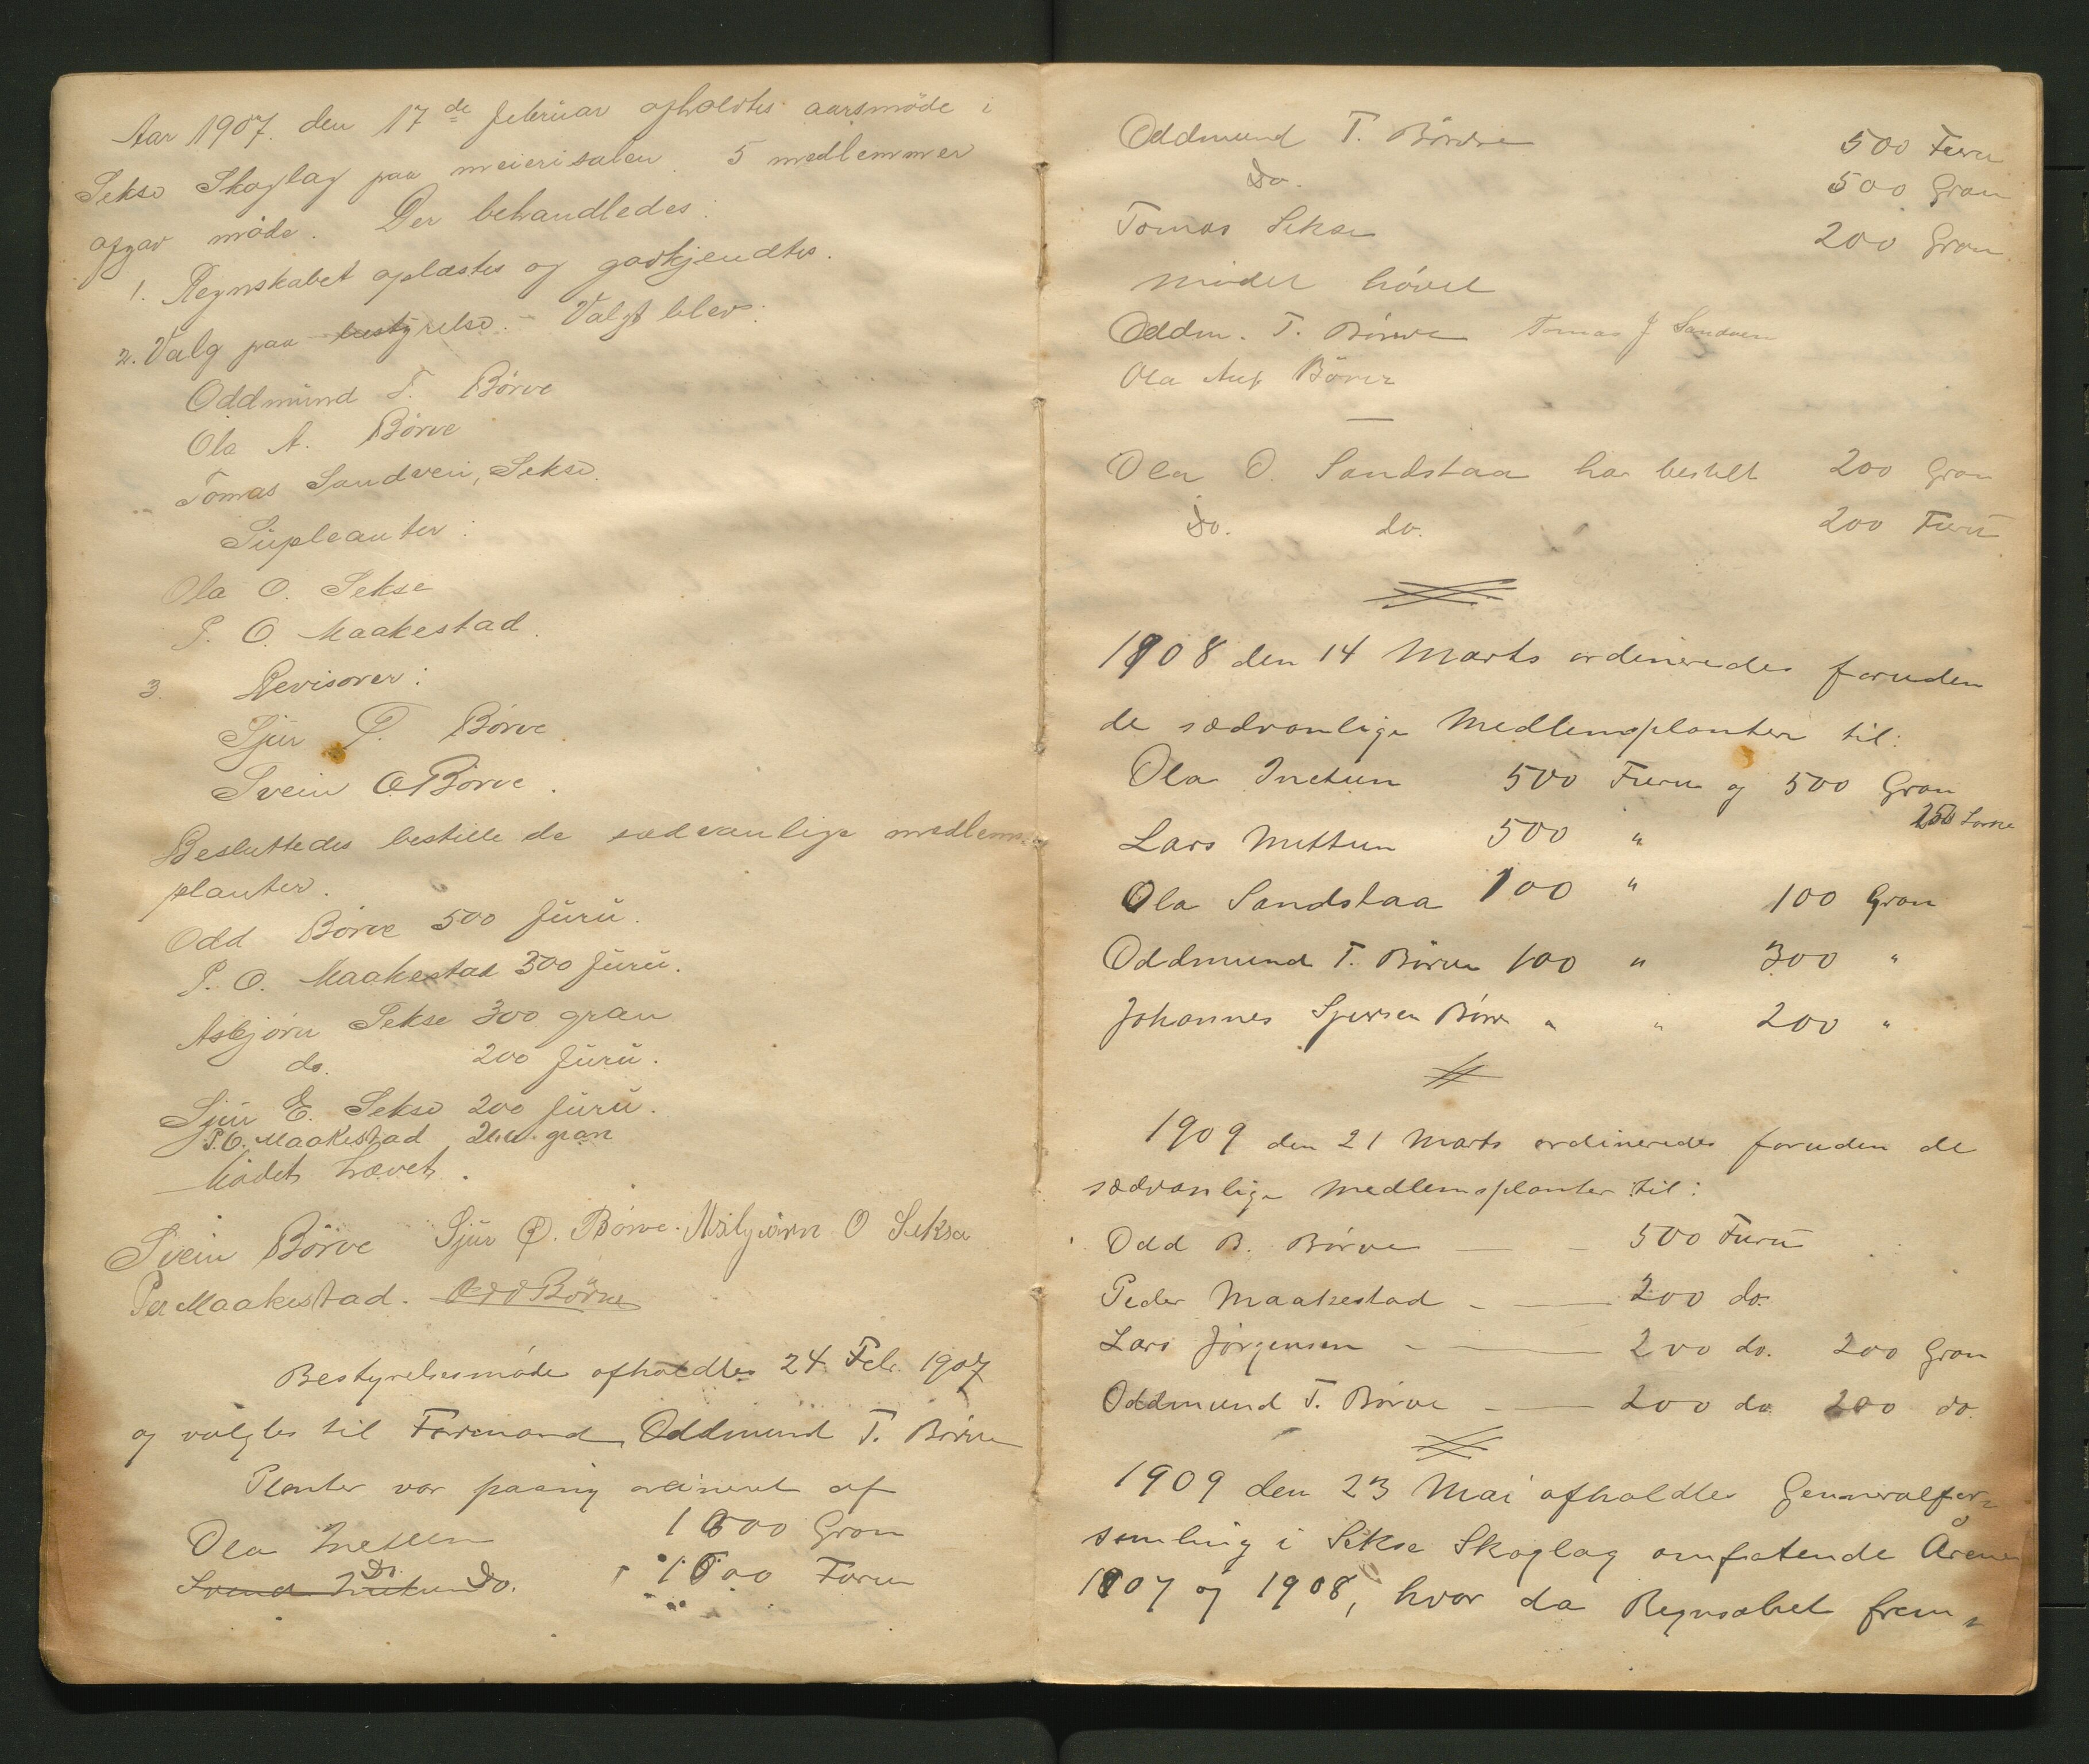 Aar 1907. den 17de februar afholdtes aarsmøde i
Sekse Skoglag paa meierisalen 5 medlemmer
afgav møde. Der behandledes:
1. Regnskabet oplæstes og godkjendtes.
2. Valg paa bestyrelse. - Valgt blev:
Oddmund T. Børve
Ola A. Børve
Tomas Sandven, Sekse.
Supleanter:
Ola O. Sekse
P. O. Maakestad.
3. Revisorer:
Sjur P. Børve
Svein O Børve.
Besluttedes bestille de sædvanlige medlems
planter.
Odd Børve 500 furu.
P. O. Maakestad 300 furu.
Asbjørn Sekse 300 gran
do. 200 furu.
Sjur E. Sekse 200 furu.
P.O. Maakestad gran
Mødet hævet.
Svein Børve Sjur P. Børve. Asbjørn O Sekse
Per Maakestad. Odd Børve
Bestyrelsesmøde afholdtes 24 Feb. 1907
og valgtes til Formand Oddmund T. Børve
Planter var paany ordineret af
Ola Inetun 1000 Gran
Svend Inetun Do. Do. 1000 Furu
Oddmund T. Børve 500 Furu
Do. 500 Gran
Tomas Sekse 200 Gran.
Mødet hævet
Oddm. T. Børve Tomas J Sandven
Ola Børve
Ola O. Sandstaa har bestilt 200 Gran
Do. do. 200 Furu
1908 den 14 Marts ordineredes foruden
de sædvanlige Medlemsplanter til:
Ola Inetun 500 Furu og 500 Gran
Lars Mettun 500 " 250
Ola Sandstaa 100 " 100 Gran
Oddmund T. Børve 100 " 300 "
Johannes Sjursen Børve " " 200 "
1909 den 21 Marts ordineredes foruden de
sædvanlige Medlemsplanter til:
Odd B. Børve — - 500 Furu
Peder Maakestad - — 200 do.
Lars Jørgensen - — 200 do. 200 Gran
Oddmund T. Børve - — 200 do 200 do.
1909 den 23 Mai afholdtes Genneralfor-
samling i Sekse Skoglag omfatende Årene
1907 og 1908, hvor da Regnsabet frem-